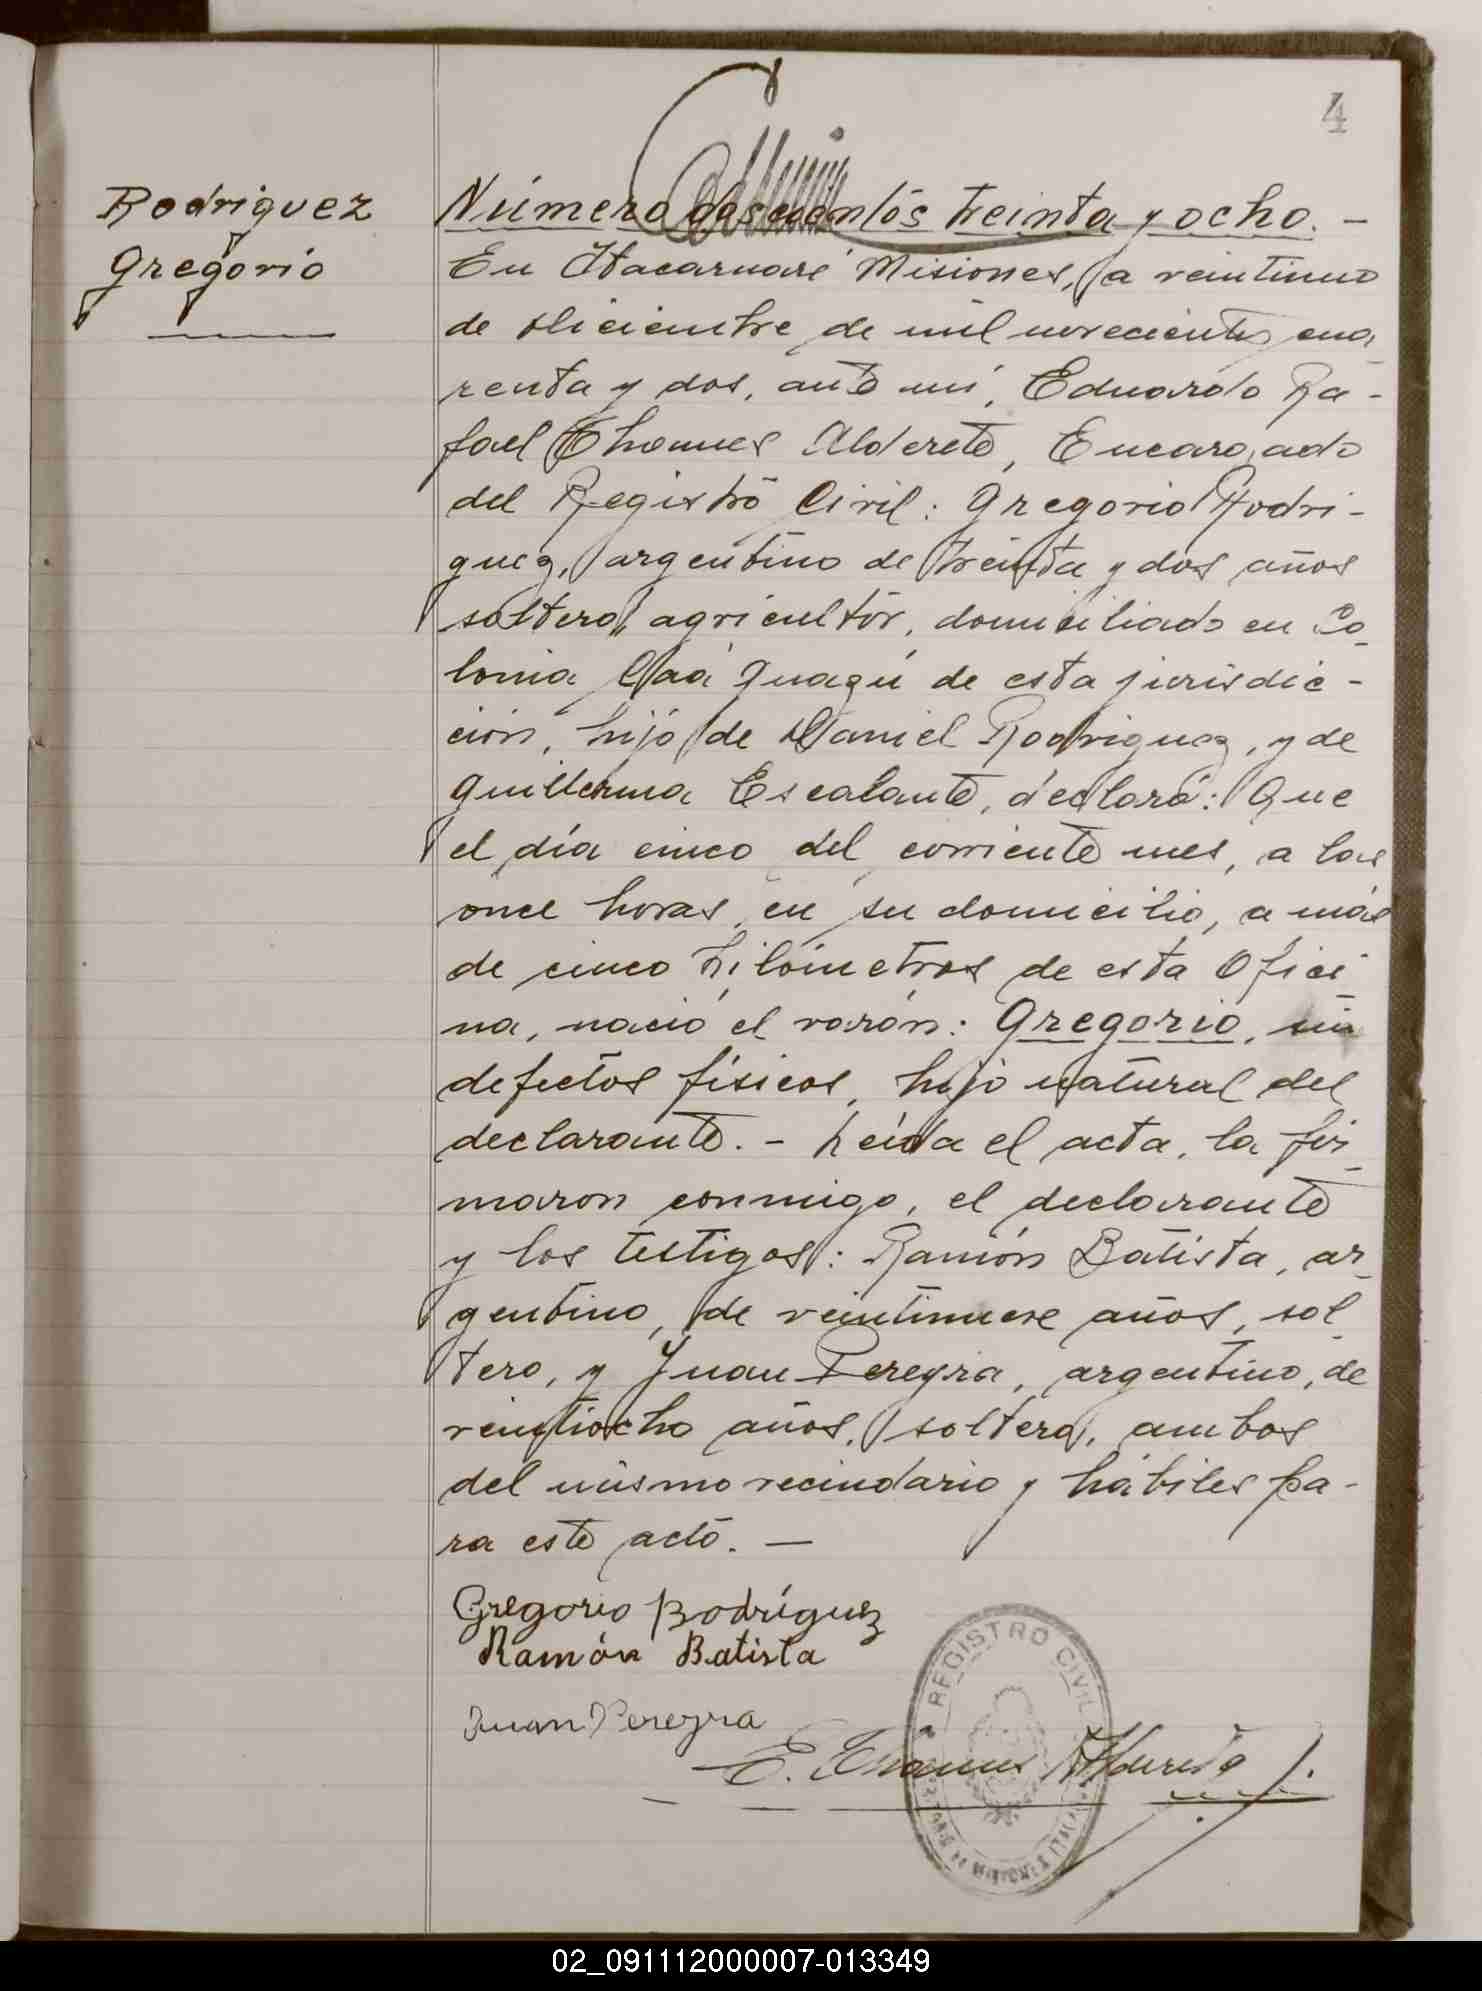 4
Rodriguez
Gregorio
Número doscientos treinta y ocho. -
En Itacaruaré Misiones, a veintiuno
de diciembre de mil novecientos cua-
renta y dos, ante mí, Eduardo Ra-
fael Thamus Alderete, Encargado
del Registro Civil: Gregorio Rodri-
guez, argentino de treinta y dos años
soltero, agricultor, domiciliado en Co-
lonia Caá Guazú de esta jurisdic-
ción, hijo de Daniel Rodriguez, y de
Guillerma Escalante, declaró: Que
el día cinco del corriente mes, a las
once horas, en su domicilio, a más
de cinco kilómetros de esta Ofici-
na, nació el varón: Gregorio, sin
defectos físicos, hijo natural del
declarante. - Leída el acta, la fir-
maron conmigo, el declarante
y los testigos: Ramón Batista, ar-
gentino, de veintinueve años, sol-
tero, y Juan Pereyra, argentino, de
veintiocho años, soltero, ambos
del mismo vecindario y hábiles pa-
ra este acto. —
Gregorio Rodríguez
Ramón Batista
Juan Pereyra
E. Thamus Alderete
REGISTRO CIVIL
02_091112000007-013349